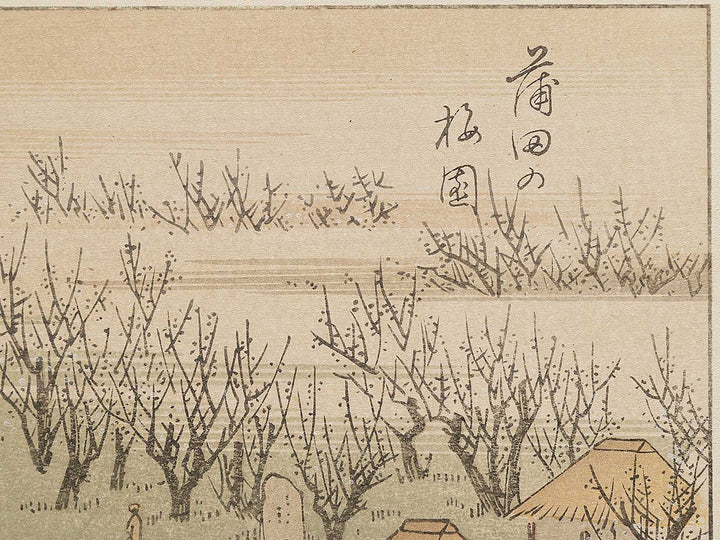 蒲田の
梅園